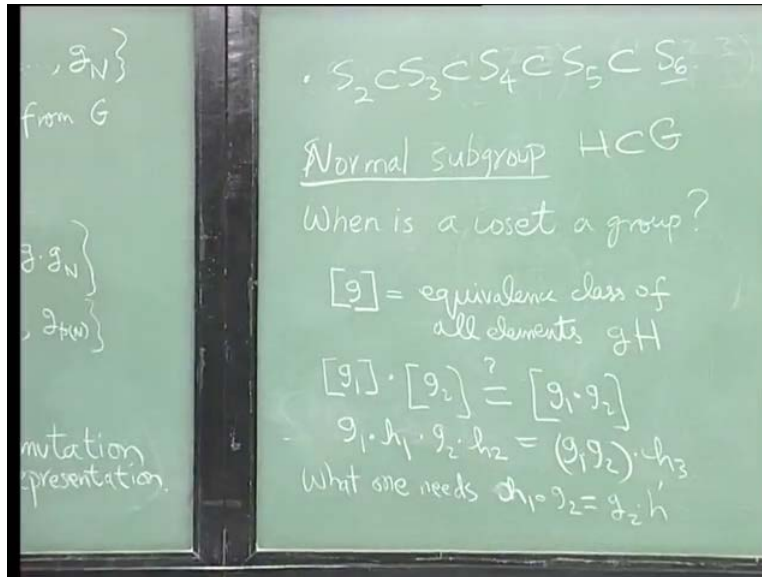 ..., g_N}
from G
g·g_N}
, g_{p(N)}}
mutation
epresentation.
· S_2 ⊂ S_3 ⊂ S_4 ⊂ S_5 ⊂ S_6
Normal subgroup H ⊂ G
When is a coset a group?
[g] = equivalence class of
all elements gH
[g_1]·[g_2] ?= [g_1·g_2]
g_1·h_1·g_2·h_2 = (g_1g_2)·h_3
What one needs h_1·g_2 = g_2·h'